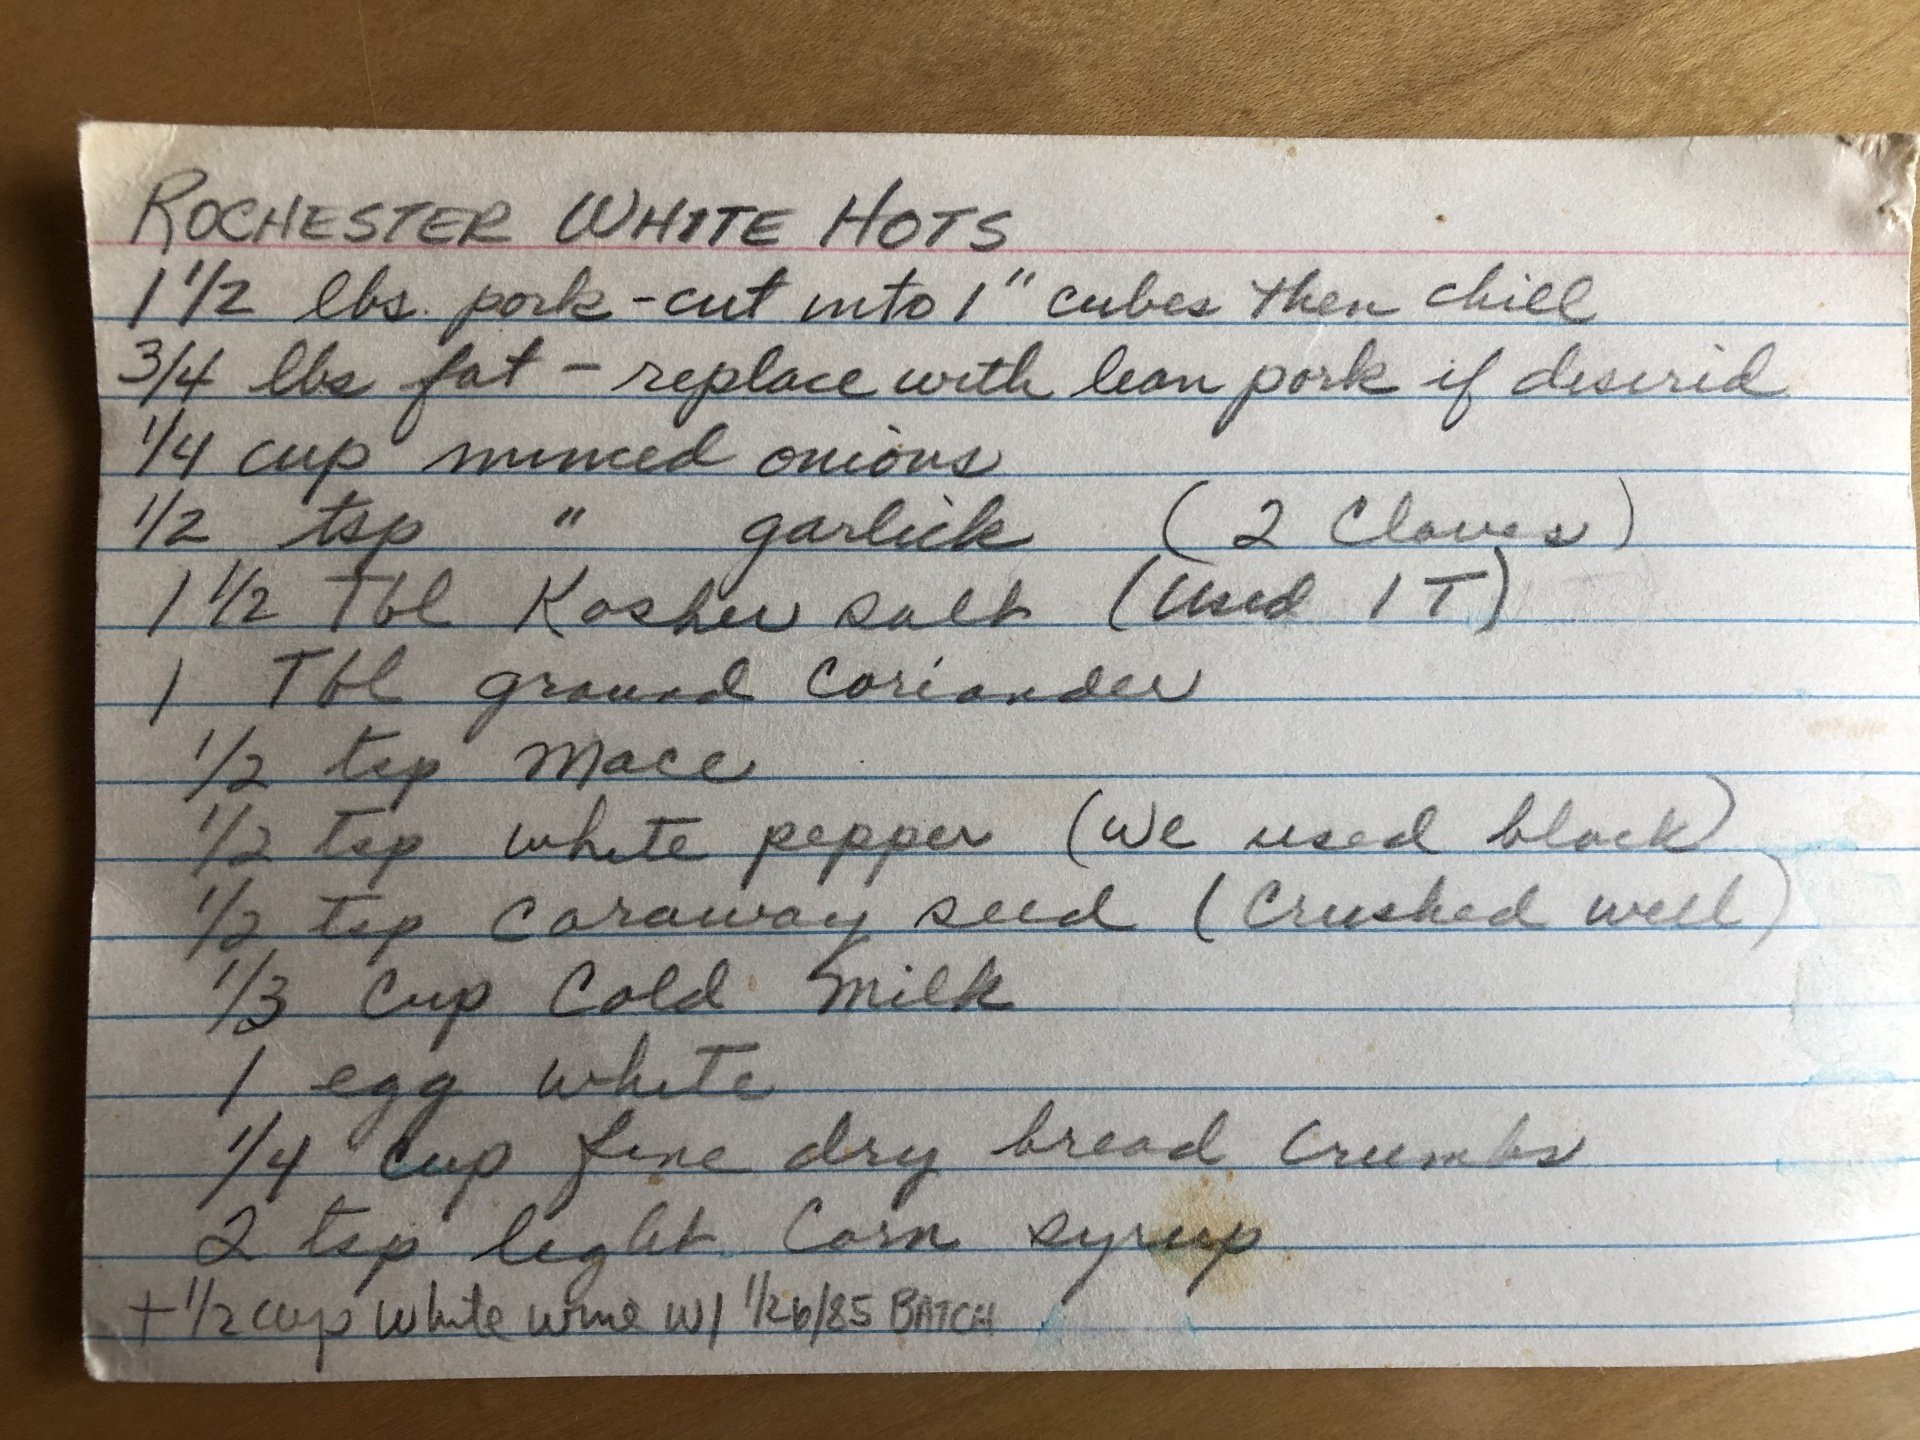 ROCHESTER WHITE HOTS
1 1/2 lbs. pork - cut into 1" cubes then chill
3/4 lbs fat - replace with lean pork if desirid
1/4 cup minced onions
1/2 tsp " garlick (2 Cloves)
1 1/2 Tbl Kosher salt (Used 1 T)
1 Tbl ground coriander
1/2 tsp Mace
1/2 tsp white pepper (We used black)
1/2 tsp Caraway seed (Crushed well)
1/3 Cup Cold Milk
1 egg white
1/4 cup fine dry bread crumbs
2 tsp light Corn syrup
+ 1/2 cup white wine w/ 1/26/85 BATCH